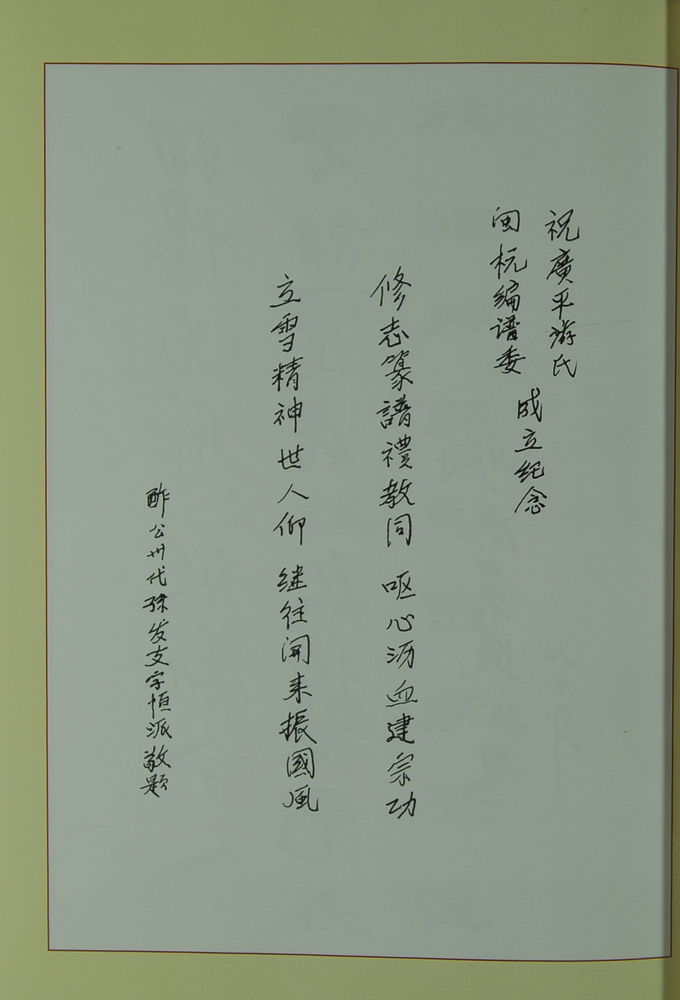 祝廣平游氏
闽杭编谱委
成立纪念
修志篆譜禮教同 呕心沥血建宗功
立雪精神世人仰 继往開来振國風
酢公卅代孫发支字恒派敬题